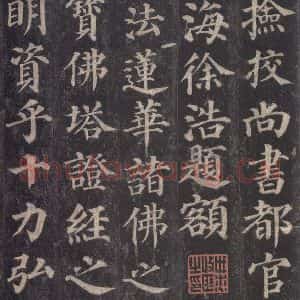 撿挍尚書都官
海徐浩題額
法蓮華諸佛之
寳佛塔證經之
明資乎十力弘